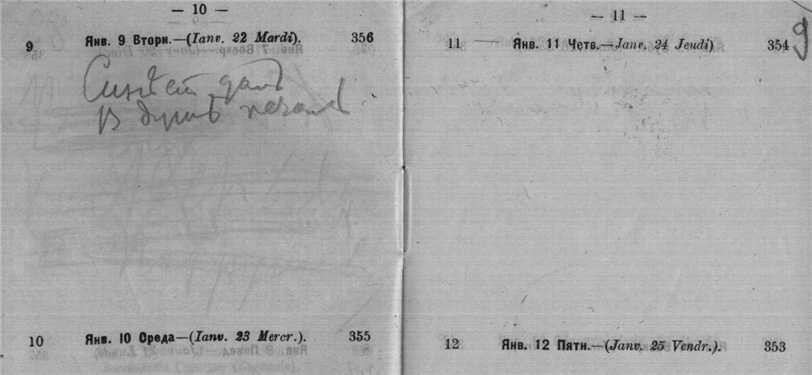 — 10 —
9 Янв. 9 Вторн.—(Ianv. 22 Mardi). 356
Синеет даль
В душе печаль
10 Янв. 10 Среда—(Ianv. 23 Mercr.). 355
— 11 —
11 Янв. 11 Четв.—Janv. 24 Jeudi) 354 9
12 Янв. 12 Пятн.—(Janv. 25 Vendr.). 353